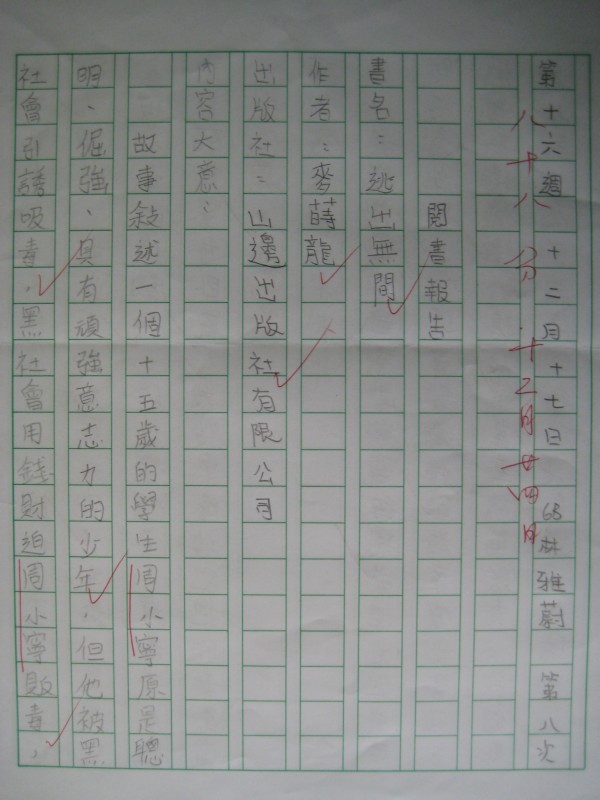 第十六週 十二月十七日 6B林雅蔚 第八次
八十八分 十二月廿四日
閱書報告
書名：逃出無間
作者：麥蒔龍
出版社：山邊出版社有限公司
內容大意：
故事敍述一個十五歲的學生周小寧原是聰
明、倔強、具有頑強意志力的少年，但他被黑
社會引誘吸毒，黑社會用錢財迫周小寧販毒，